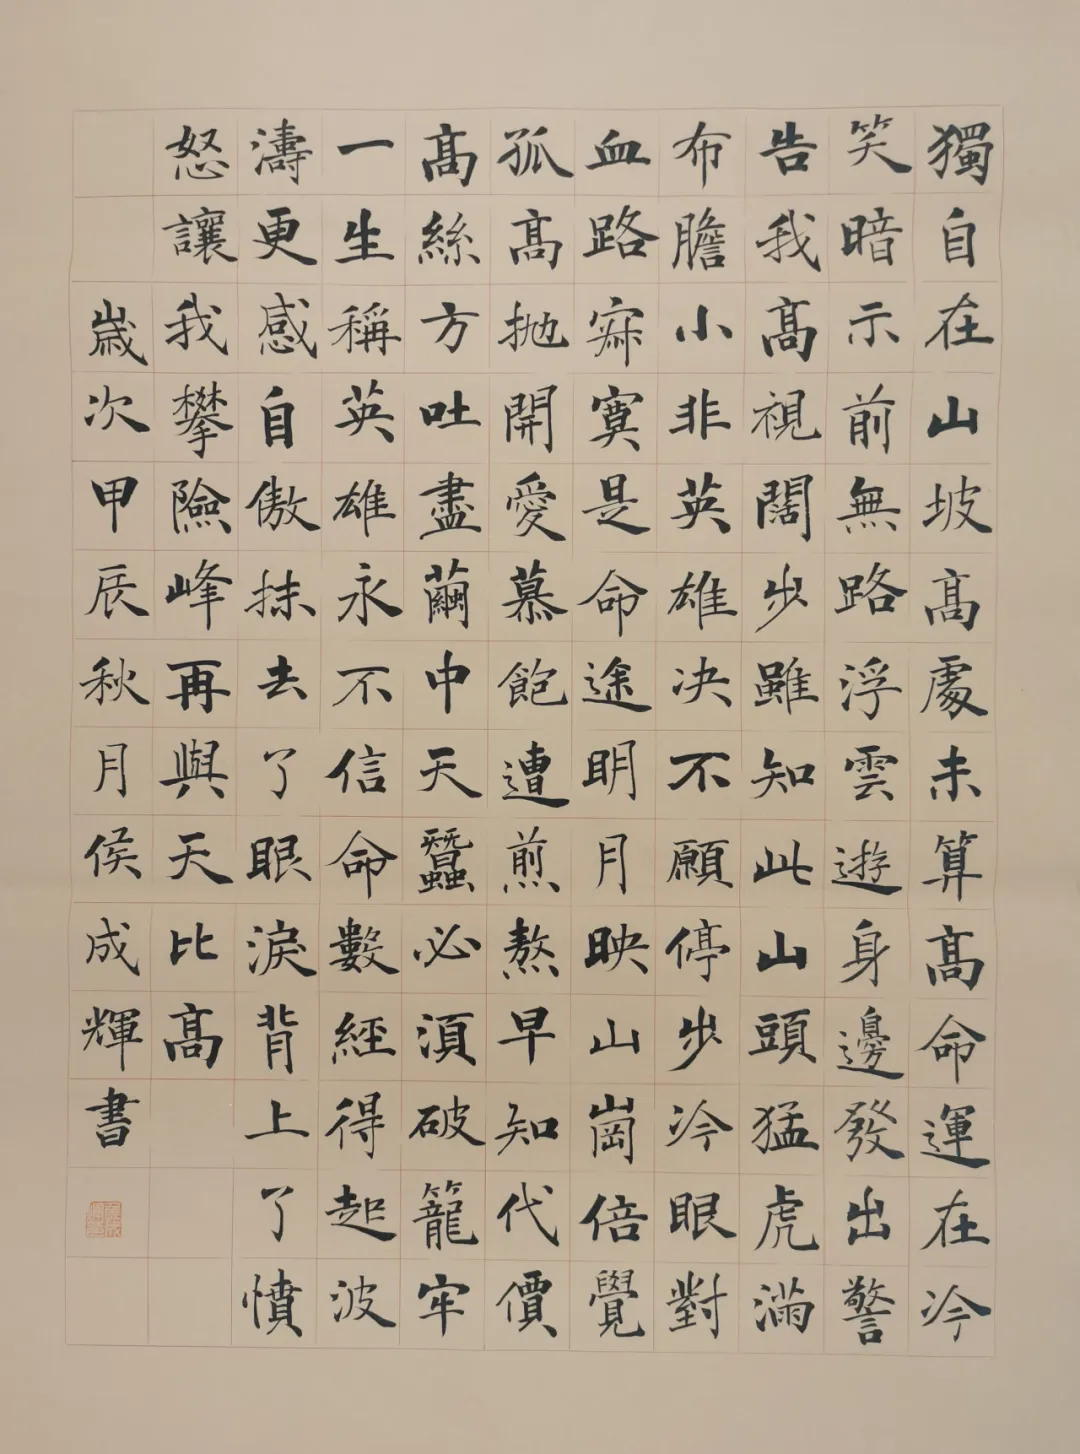 獨自在山坡高處未算高命運在冷
笑暗示前無路浮雲遊身邊發出警
告我高視闊步雖知此山頭猛虎滿
布膽小非英雄決不願停步冷眼對
血路寂寞是命途明月映山崗倍覺
孤高拋開愛慕飽遭煎熬早知代價
高絲方吐盡繭中天蠶必須破籠牢
一生稱英雄永不信命數經得起波
濤更感自傲抹去了眼淚背上了憤
怒讓我攀險峰再與天比高
歲次甲辰秋月侯成輝書